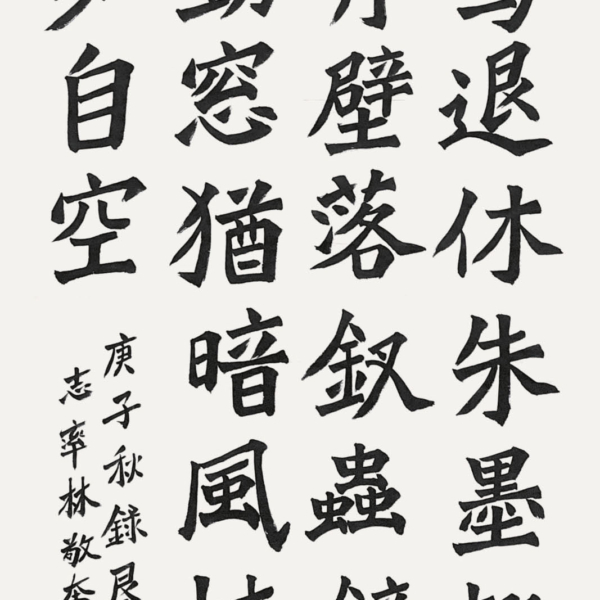 退休朱墨
壁落釵蟲
窓猶暗風
自空
庚子秋錄
志率林敬